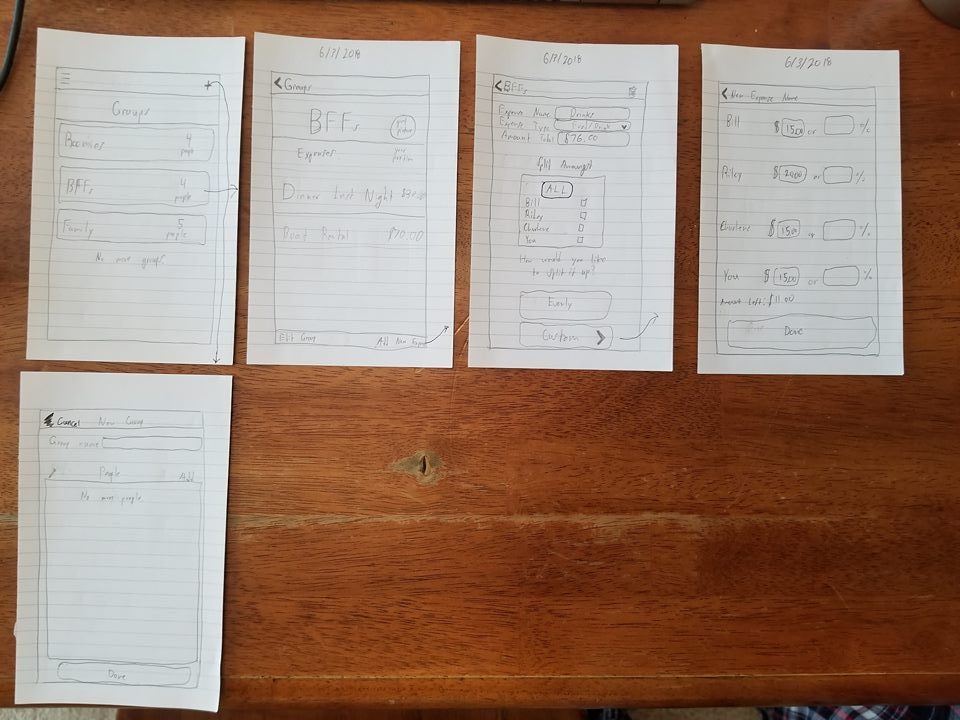 Groups
Roomies 4
people
BFFs 4
people
Family 5
people
No more groups
6/3/2018
Groups
BFFs
your
Expenses your
portion
Dinner Last Night
Boat Rental $70.00
Edit Group Add New
6/3/2018
BFFs
Expense Name Drinks
Expense Type
Amount Total $76.00
Split Amongst
ALL
Bill
Riley
Charlene
You
How would you like
to split it up?
Evenly
Custom
6/3/2018
New Expense Name
Bill $ 15.00 or %
Riley $ 20.00 or %
Charlene $ 15.00 or %
You $ 15.00 or %
Amount Left: $11.00
Done
Cancel New Group
Group name
People Add
No more people
Done